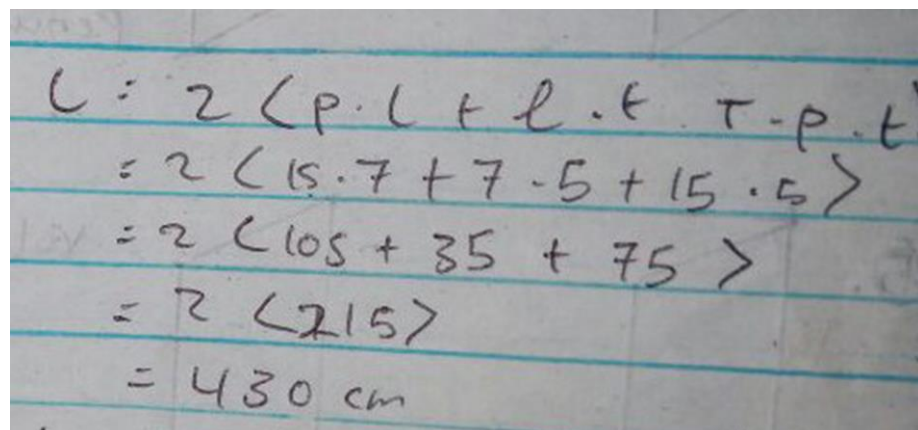 L = 2 (p.l + l.t + p.t
= 2 (15.7 + 7.5 + 15.5)
= 2 (105 + 35 + 75)
= 2 (215)
= 430 cm